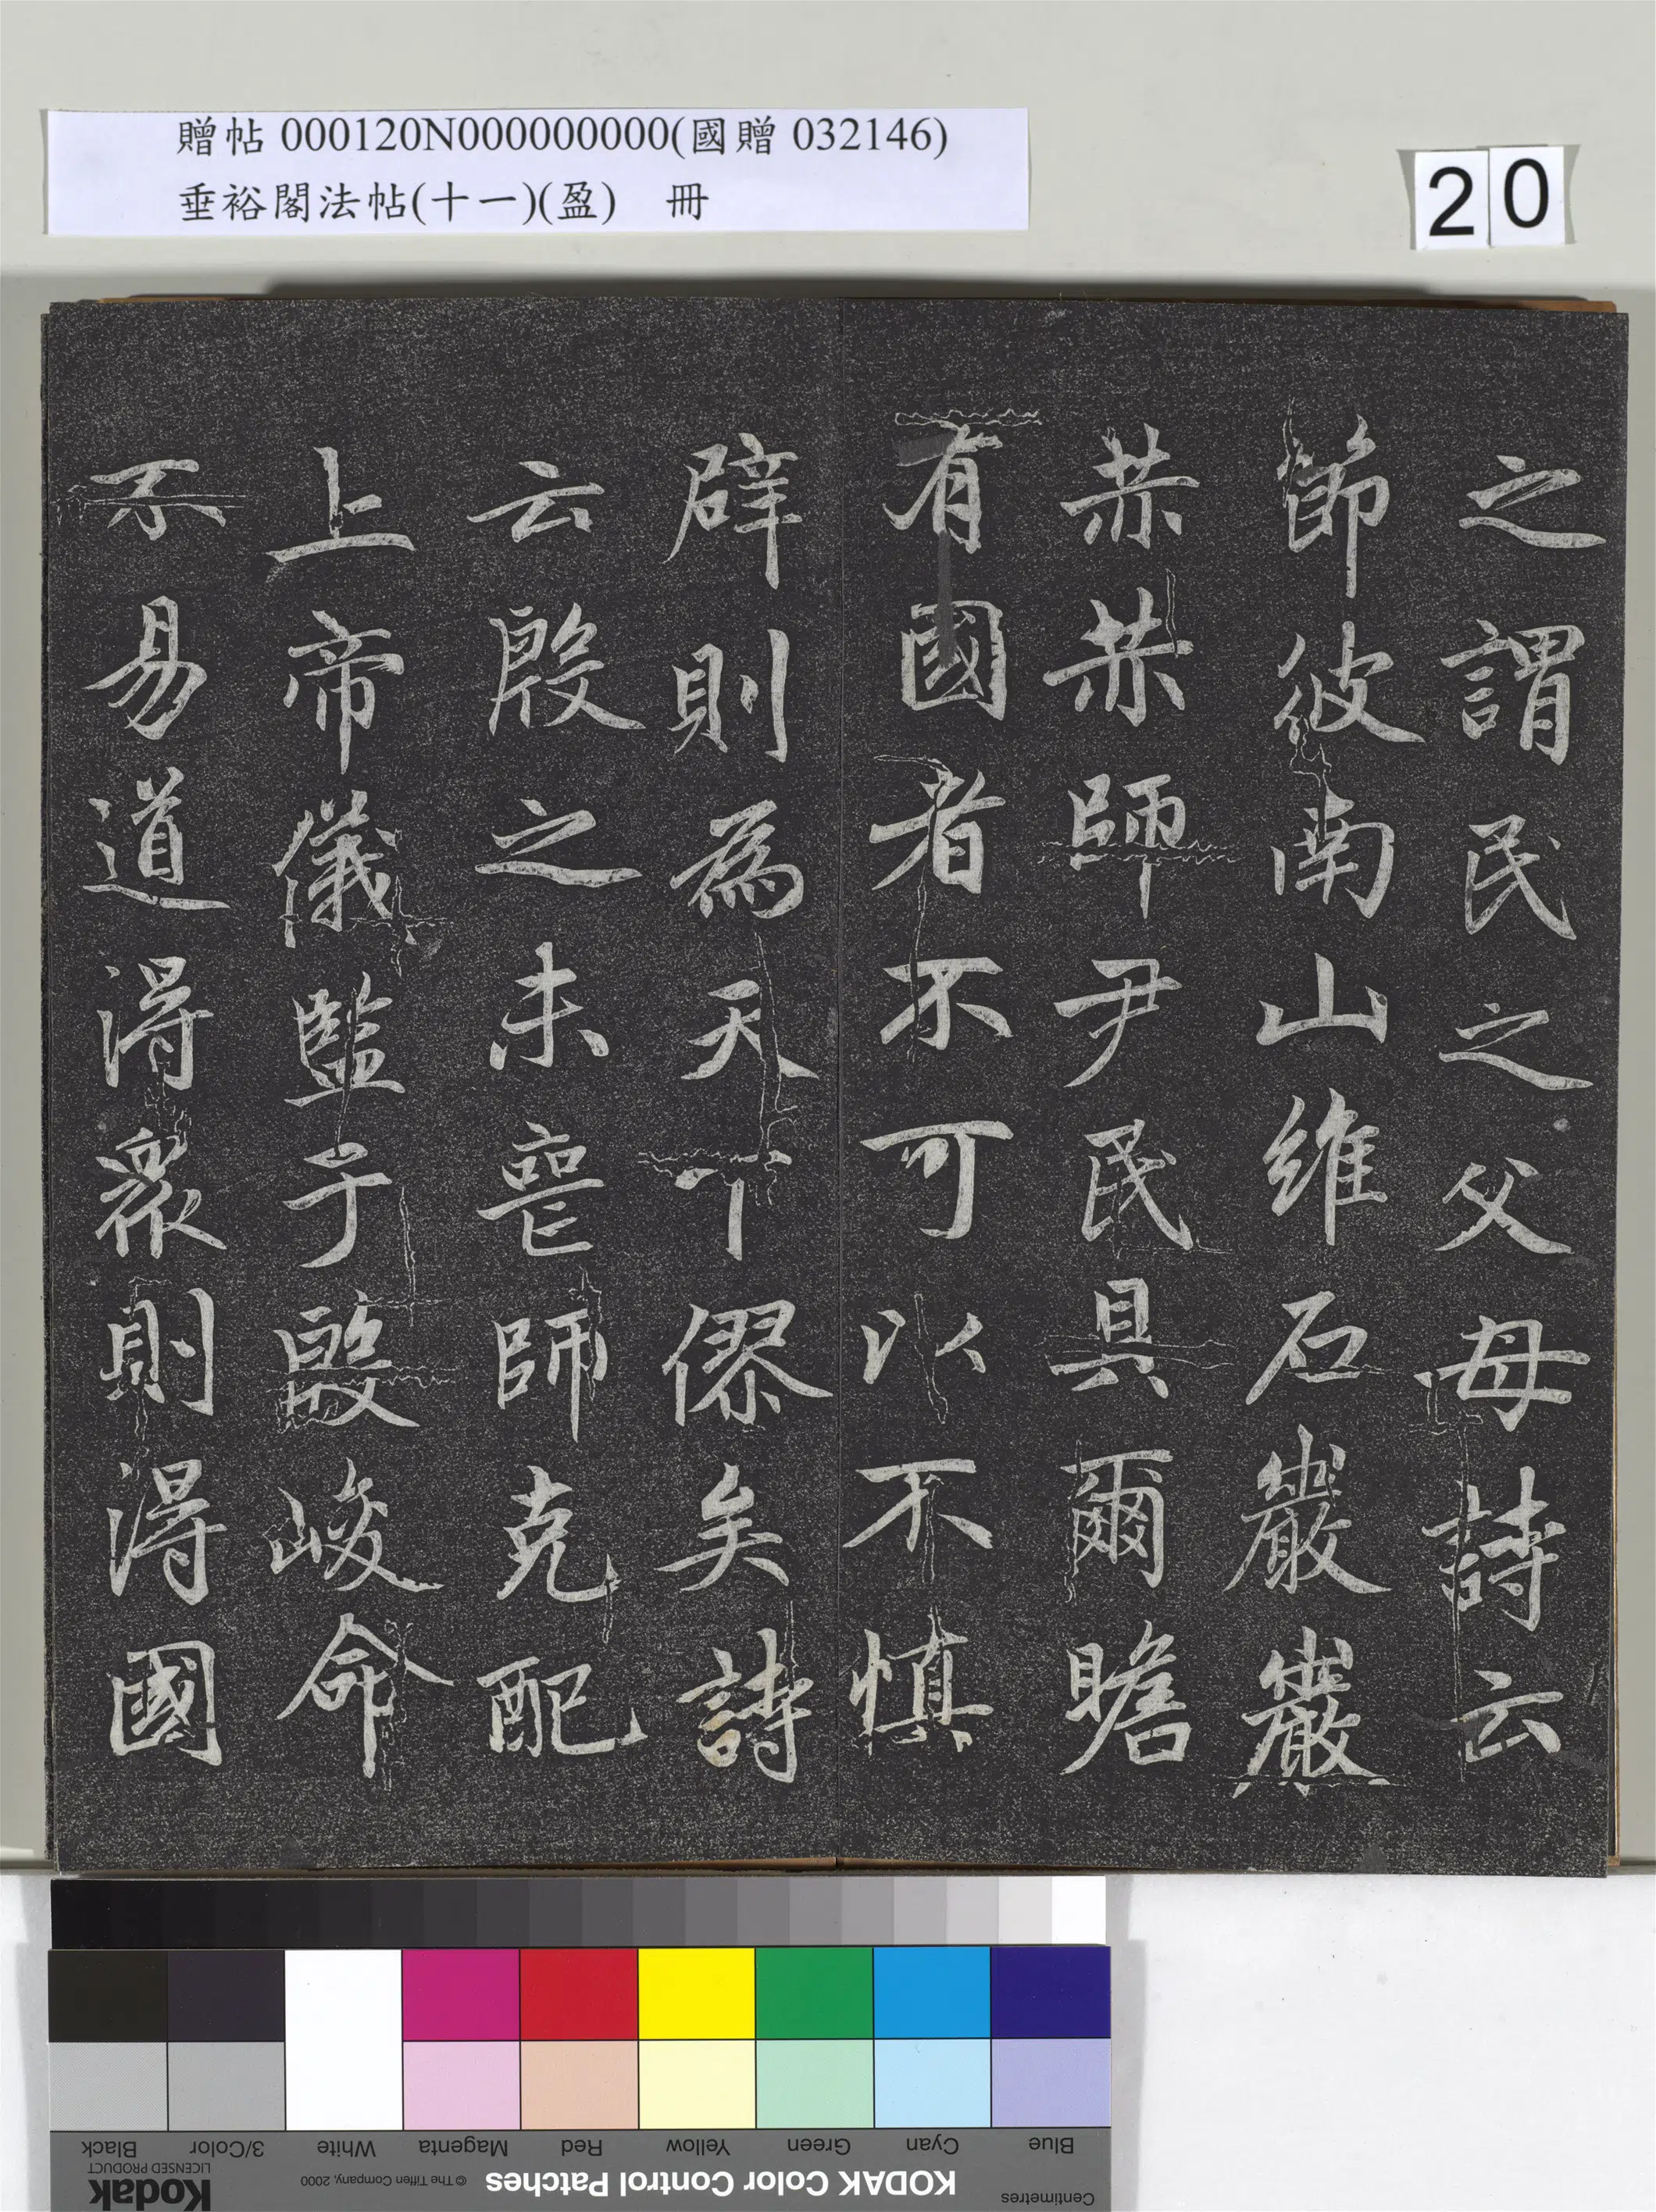 贈帖 000120N000000000(國贈 032146)
垂裕閣法帖(十一)(盈) 冊
20
之謂民之父母詩云
節彼南山維石巖巖
赫赫師尹民具爾瞻
有國者不可以不慎
辟則為天下僇矣詩
云殷之未喪師克配
上帝儀監于殷峻命
不易道得衆則得國
Black 3/Color White Magenta Red Yellow Green Cyan Blue
Kodak LICENSED PRODUCT © The Tiffen Company, 2000 KODAK Color Control Patches Centimetres